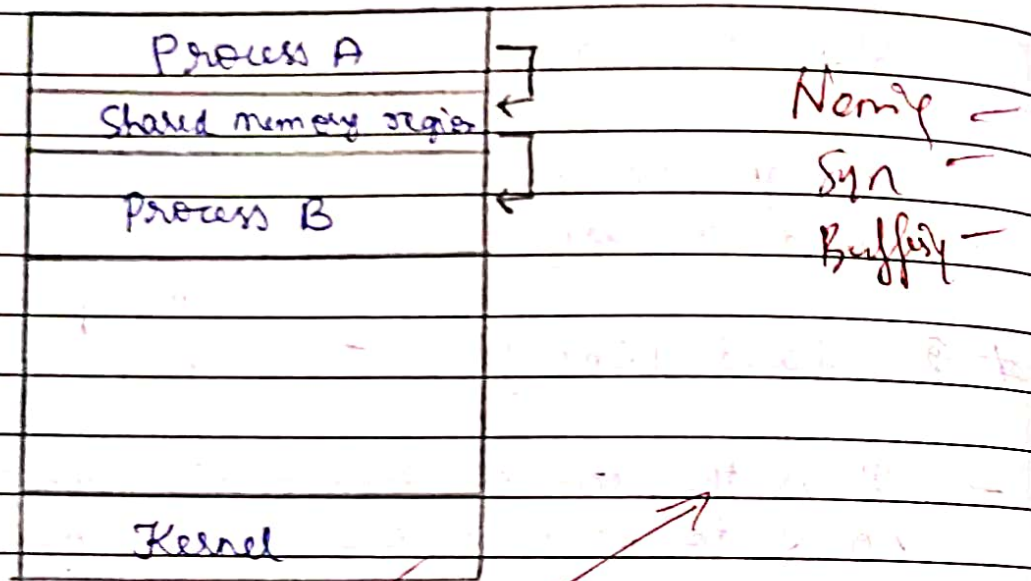 Process A
Shared memory region
Process B
Kernel
Naming -
Syn -
Buffering -